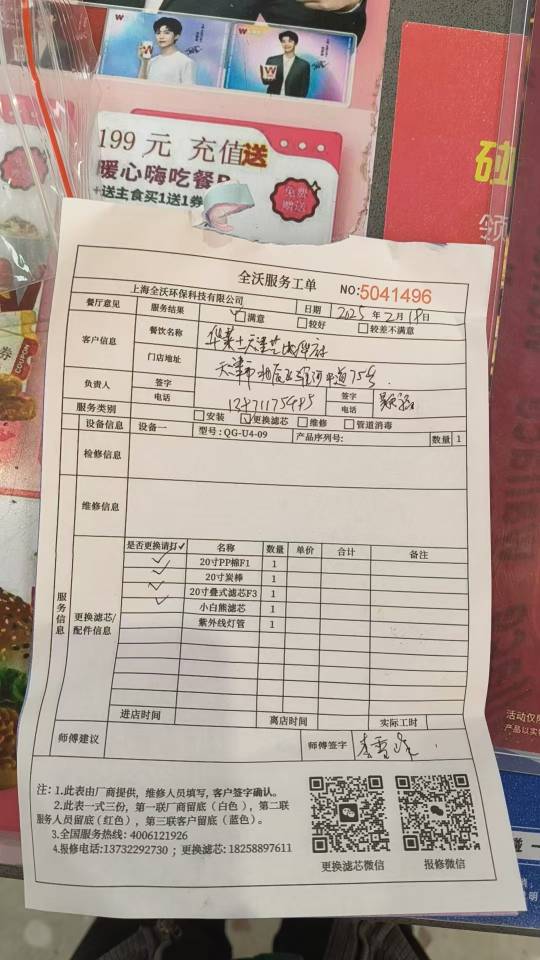 199 元 充值送
暖心嗨吃餐
+送主食买1送1券
免费
赠送
COUPON
全沃服务工单
NO:5041496
上海全沃环保科技有限公司
日期 2025 年 2 月 18 日
餐厅意见 服务结果 满意 较好 较差不满意
客户信息 餐饮名称
门店地址
负责人 签字 签字
电话 电话
服务类别 安装 更换滤芯 维修 管道消毒
设备信息 设备一 型号: QG-U4-09 产品序列号: 数量 1
检修信息
维修信息
服务信息
更换滤芯/配件信息
是否更换请打✓ 名称 数量 单价 合计 备注
✓ 20寸PP棉F1 1
✓ 20寸炭棒 1
✓ 20寸叠式滤芯F3 1
✓ 小白熊滤芯 1
紫外线灯管 1
进店时间 离店时间 实际工时
师傅建议 师傅签字
注: 1.此表由厂商提供, 维修人员填写, 客户签字确认。
2.此表一式三份, 第一联厂商留底(白色), 第二联
服务人员留底(红色), 第三联客户留底(蓝色)。
3.全国服务热线: 4006121926
4.报修电话:13732292730 ; 更换滤芯: 18258897611
更换滤芯微信 报修微信
碰
领
活动仅限
产品以实